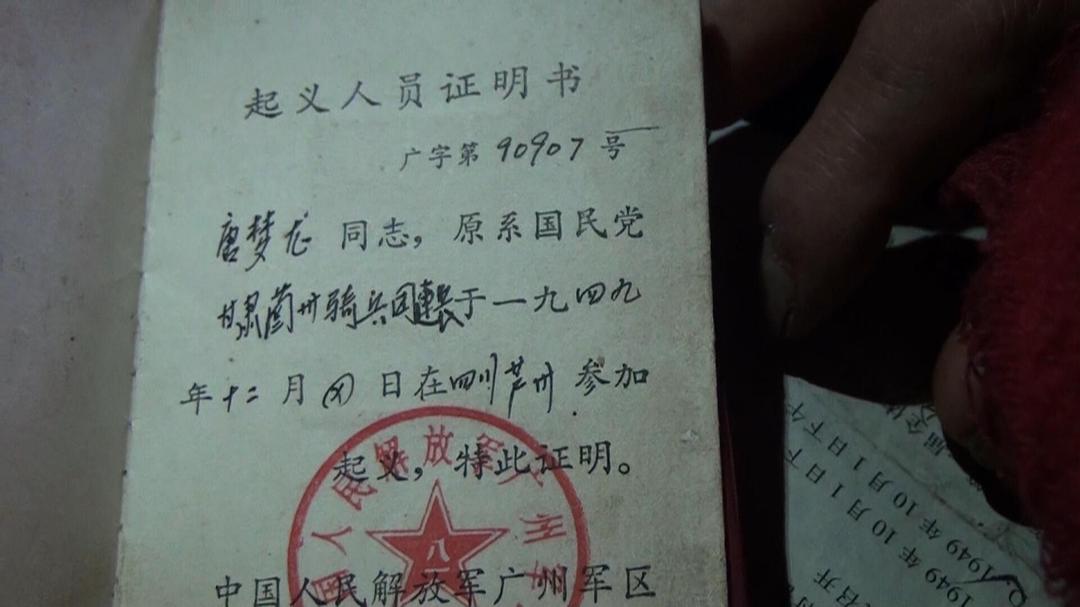 起义人员证明书
广字第 90907 号
唐梦龙 同志，原系国民党
甘肃兰州骑兵团連長于一九四九
年十二月 四 日在四川芦州参加
起义，特此证明。
中国人民解放军广州军区
国人民解放军
州
1949年10月1日下午
1949年10月1日下
召开